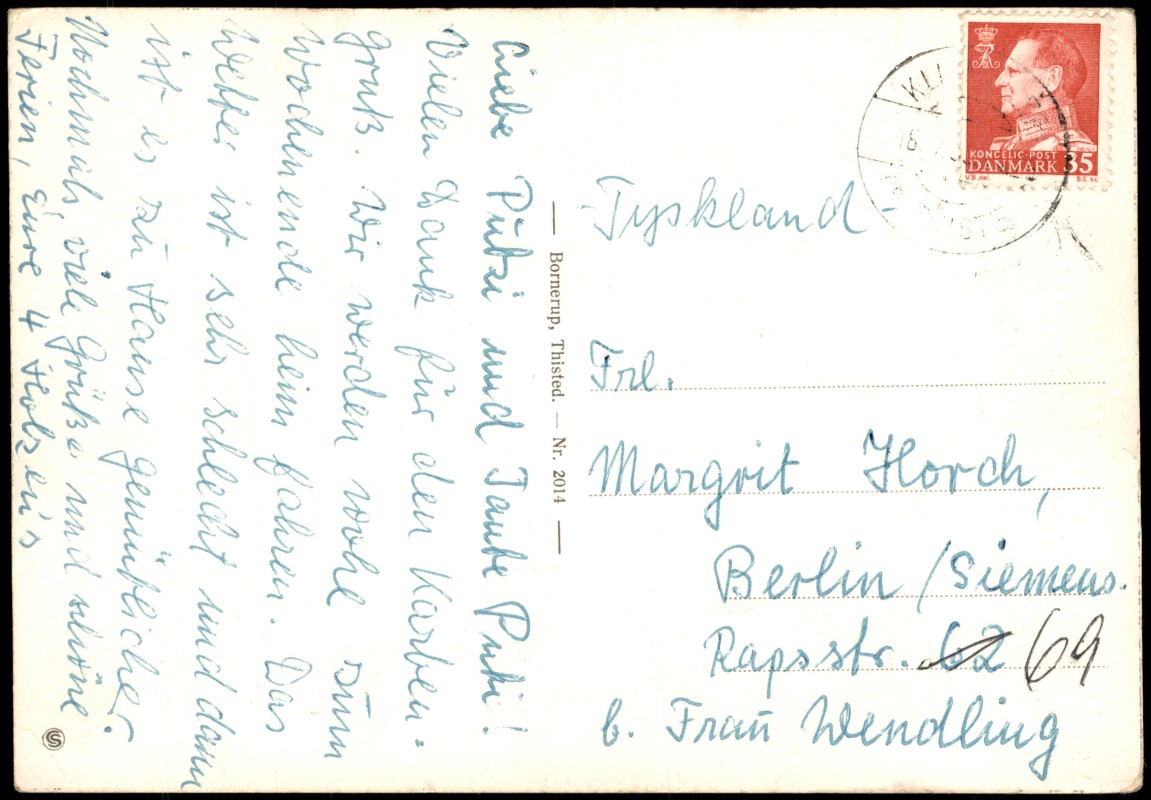 Liebe Putzi und Tante Puti!
Vielen Dank für den Karten-
gruß. Wir werden wohl zum
Wochenende heim fahren. Das
Wetter ist sehr schlecht und dann
ist es zu Hause gemütlicher.
Nochmals viele Grüße und schöne
Ferien, Eure 4 Holzen's
Bornerup, Thisted. — Nr. 2014
KONGELIG·POST
DANMARK 35
V.B. del. B.E. sc.
-Tyskland-
Frl.
Margrit Horch,
Berlin / Siemens.
Rapsstr. 62 69
b. Frau Wendling